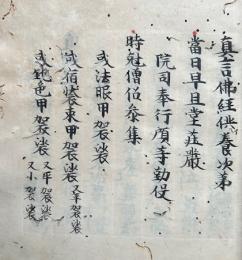 真言佛経供養次第
當日早旦堂莊嚴
院司奉行頭寺勤役
時剋僧侶參集
或法眼甲袈裟
或宿裝束甲袈裟 又平袈裟
或鈍色甲袈裟 又平袈裟 又小袈裟